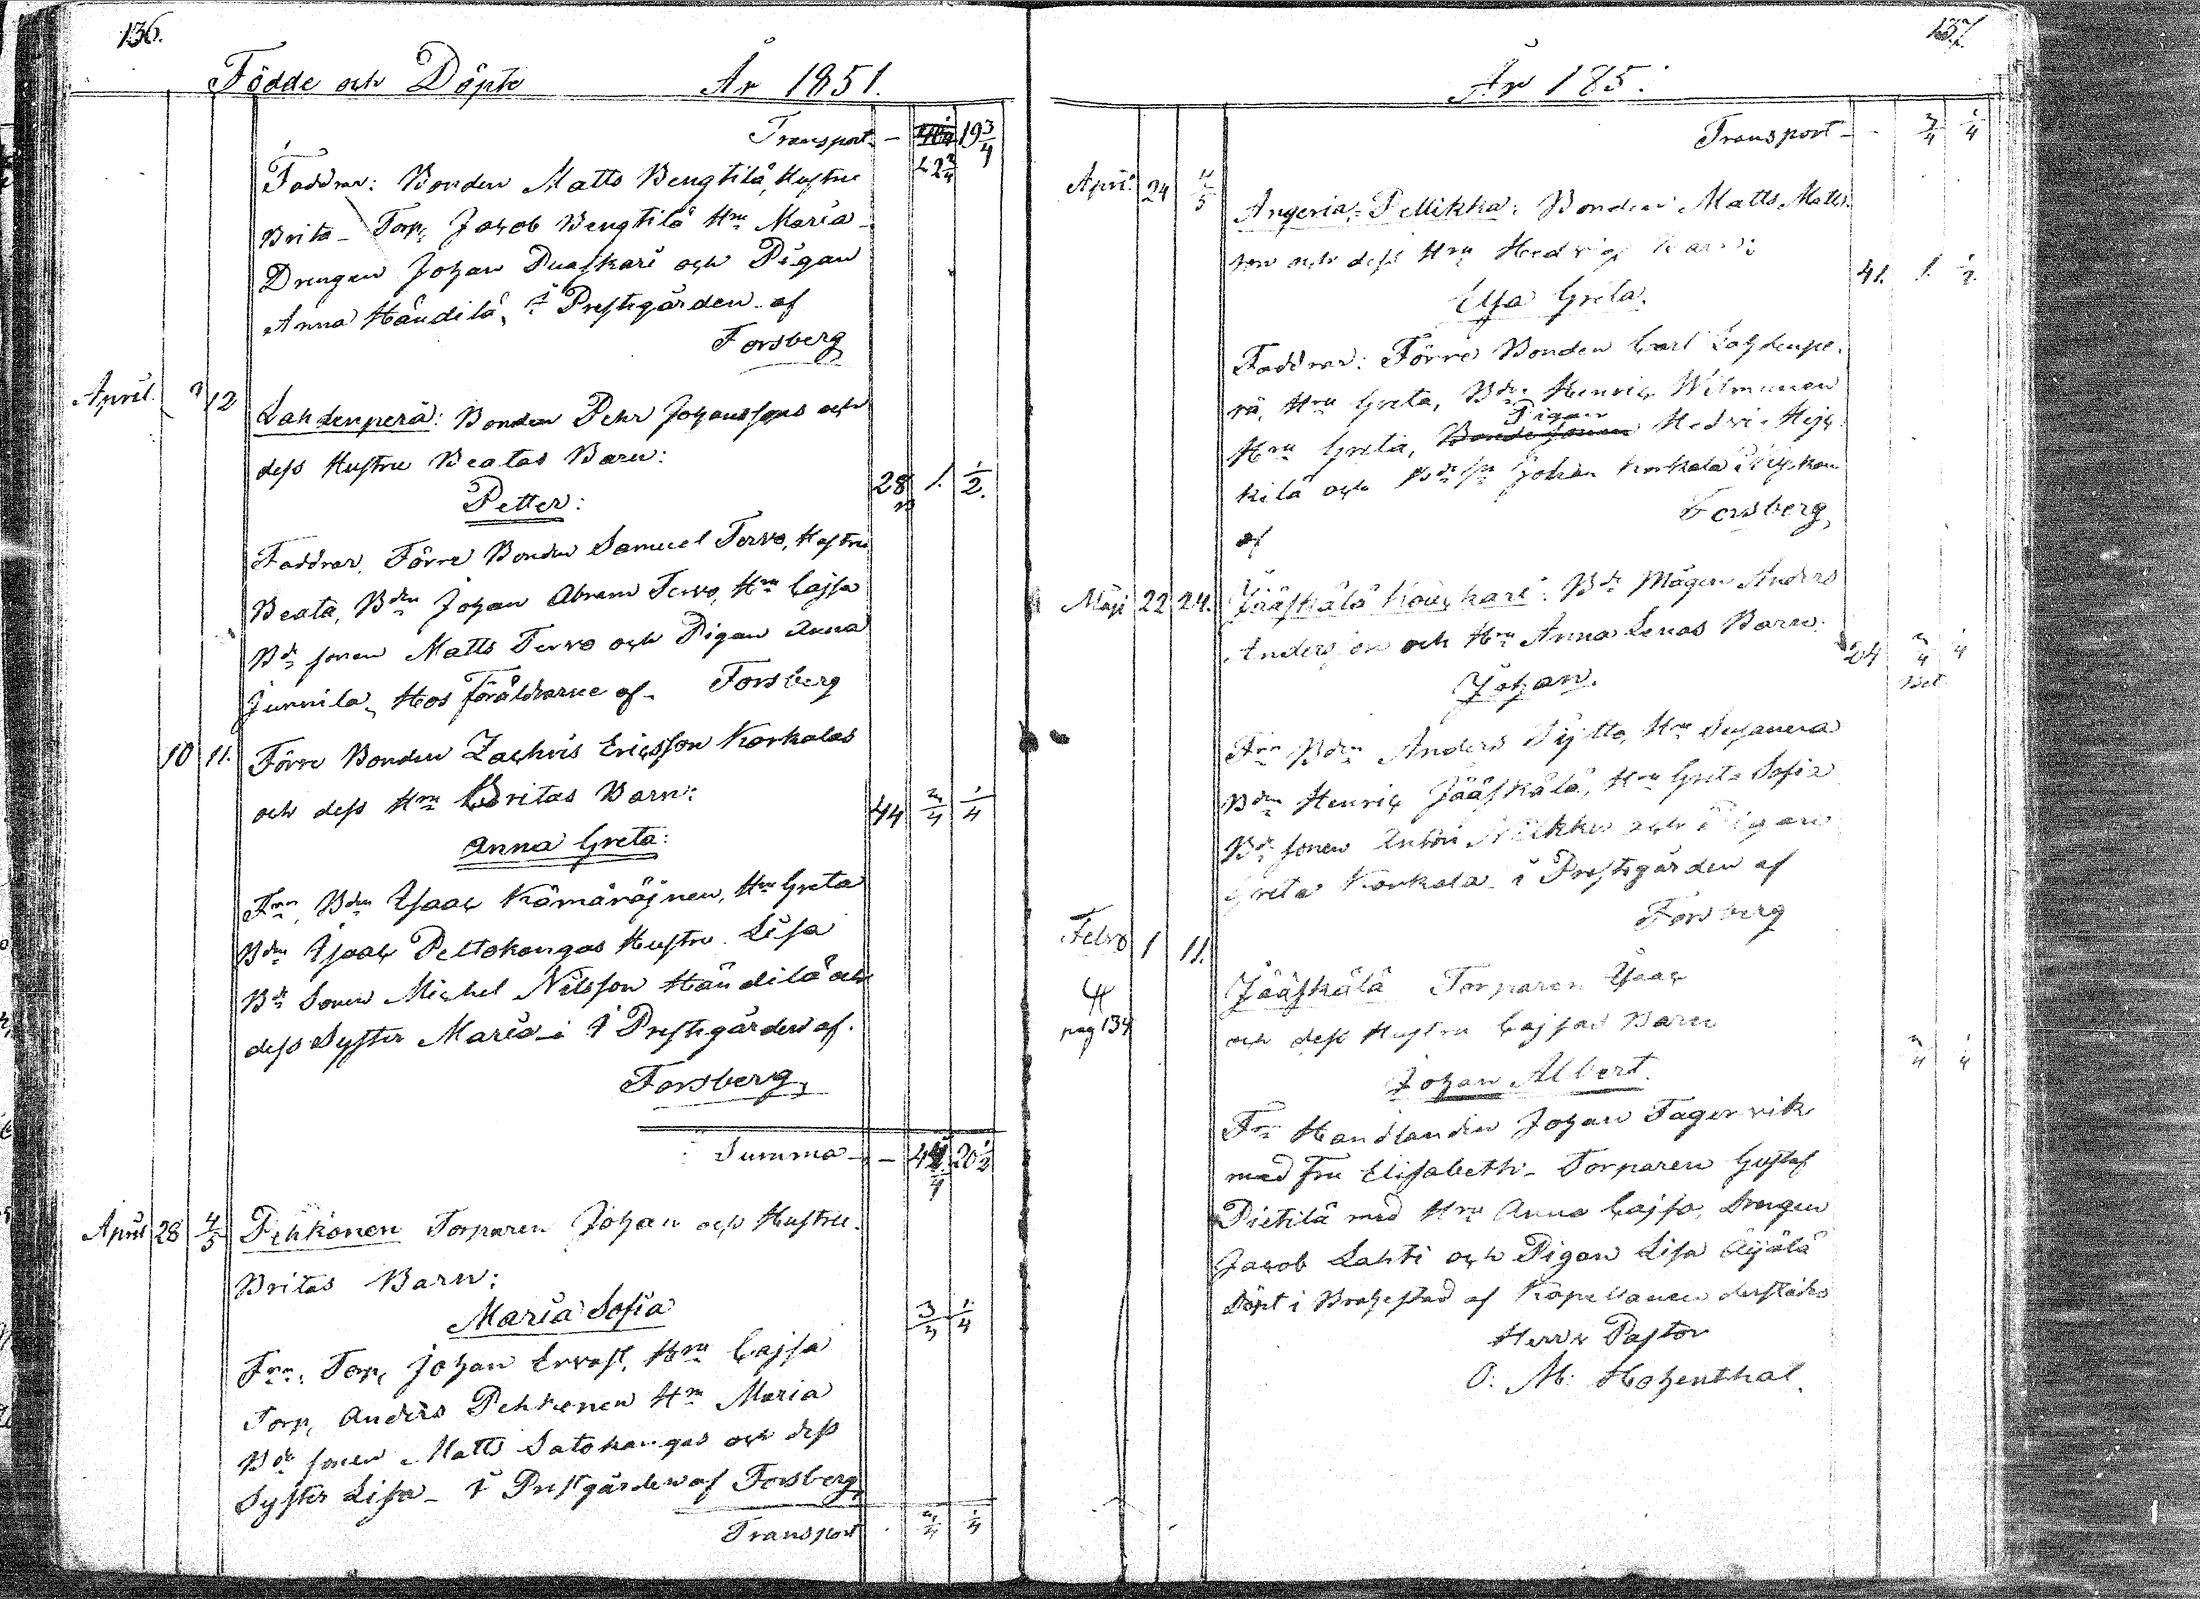 136.
Födde och Döpte År 1851.
Transport - 19 3/4
42 3/4
Faddrar: Bonden Matts Bengtilä, Hustru
Brita - Torp. Jacob Bengtilä Hru Maria -
Drengen Johan Puaskari och Pigan
Anna Händilä, i Prestgården af
Forsberg
April 12
Lahdenperä: Bonden Pehr Johanssons och
dess Hustru Beatas Barn:
28 1. 1/2.
Petter:
Faddrar, Förre Bonden Samuel Tervo, Hustru
Beata, Bden Johan Abram Tervo, Hru Cajsa
Bde sonen Matts Tervo och Pigan Anna
Junnila, Hos föräldrarne af - Forsberg
10 11. Förre Bonden Zachris Ericsson Korkalas
och dess Hru Britas Barn:
44 3/4 1/4
Anna Greta:
Frr, Bden Isaac Kämäräjnen, Hru Greta
Bden Isaac Peltokangas Hustru Lisa
Bde Sonen Michel Nilsson Händilä och
dess Syster Maria - i Prestgården af.
Forsberg
Summa - - 20 1/2
April 28 4/5 Pehkonen Torparen Johan och Hustru
Britas Barn:
Maria Sofia
3/4 1/4
Frr: Torp. Johan Ervast, Hru Cajsa
Torp, Anders Pehkonen Hru Maria
Bde sonen Matts Satokangas och dess
Syster Lisa - i Prestgården af Forsberg
Transport 3/4 1/4
137.
År 185
Transport - - 3/4 1/4
April 24 4/5
Angeria, Pellikka: Bonden Matts Matts-
son och dess Hru Hedvigs Barn:
41. 1. 1/2.
Elsa Greta.
Faddrar: Förre Bonden Carl Lahdenpe-
rä, Hru Greta, Bden Henric
Pigan
Hru Greta, Bondesonen
kilä och Bde sn Johan Korkala i
Forsberg
af
Maji 22 24. Jääskälä Kouckari: Bde Mågen Anders
Andersson och Hru Anna Lenas Barn.
24 3/4 1/4
Johan.
Frr Bden Anders Hru Susanna
Bden Henric Jääskälä, Hru Greta Sofia
Bde sonen och Pigan
Greta Korkala i Prestgården af
Forsberg
Febr 1 11.
Jääskälä Torparen Isaac
pag 134
och dess Hustru Cajsas Barn
3/4 1/4
Johan Albert.
Frr Handlanden Johan Fagervik
med Fru Elisabeth - Torparen Gustaf
Pietilä med Hru Anna Cajsa, Drengen
Jacob Lahti och Pigan Lisa Äijälä
Döpt i Brahestad af Kapellanen derstädes
Herr Pastor
O: M: Hohenthal.